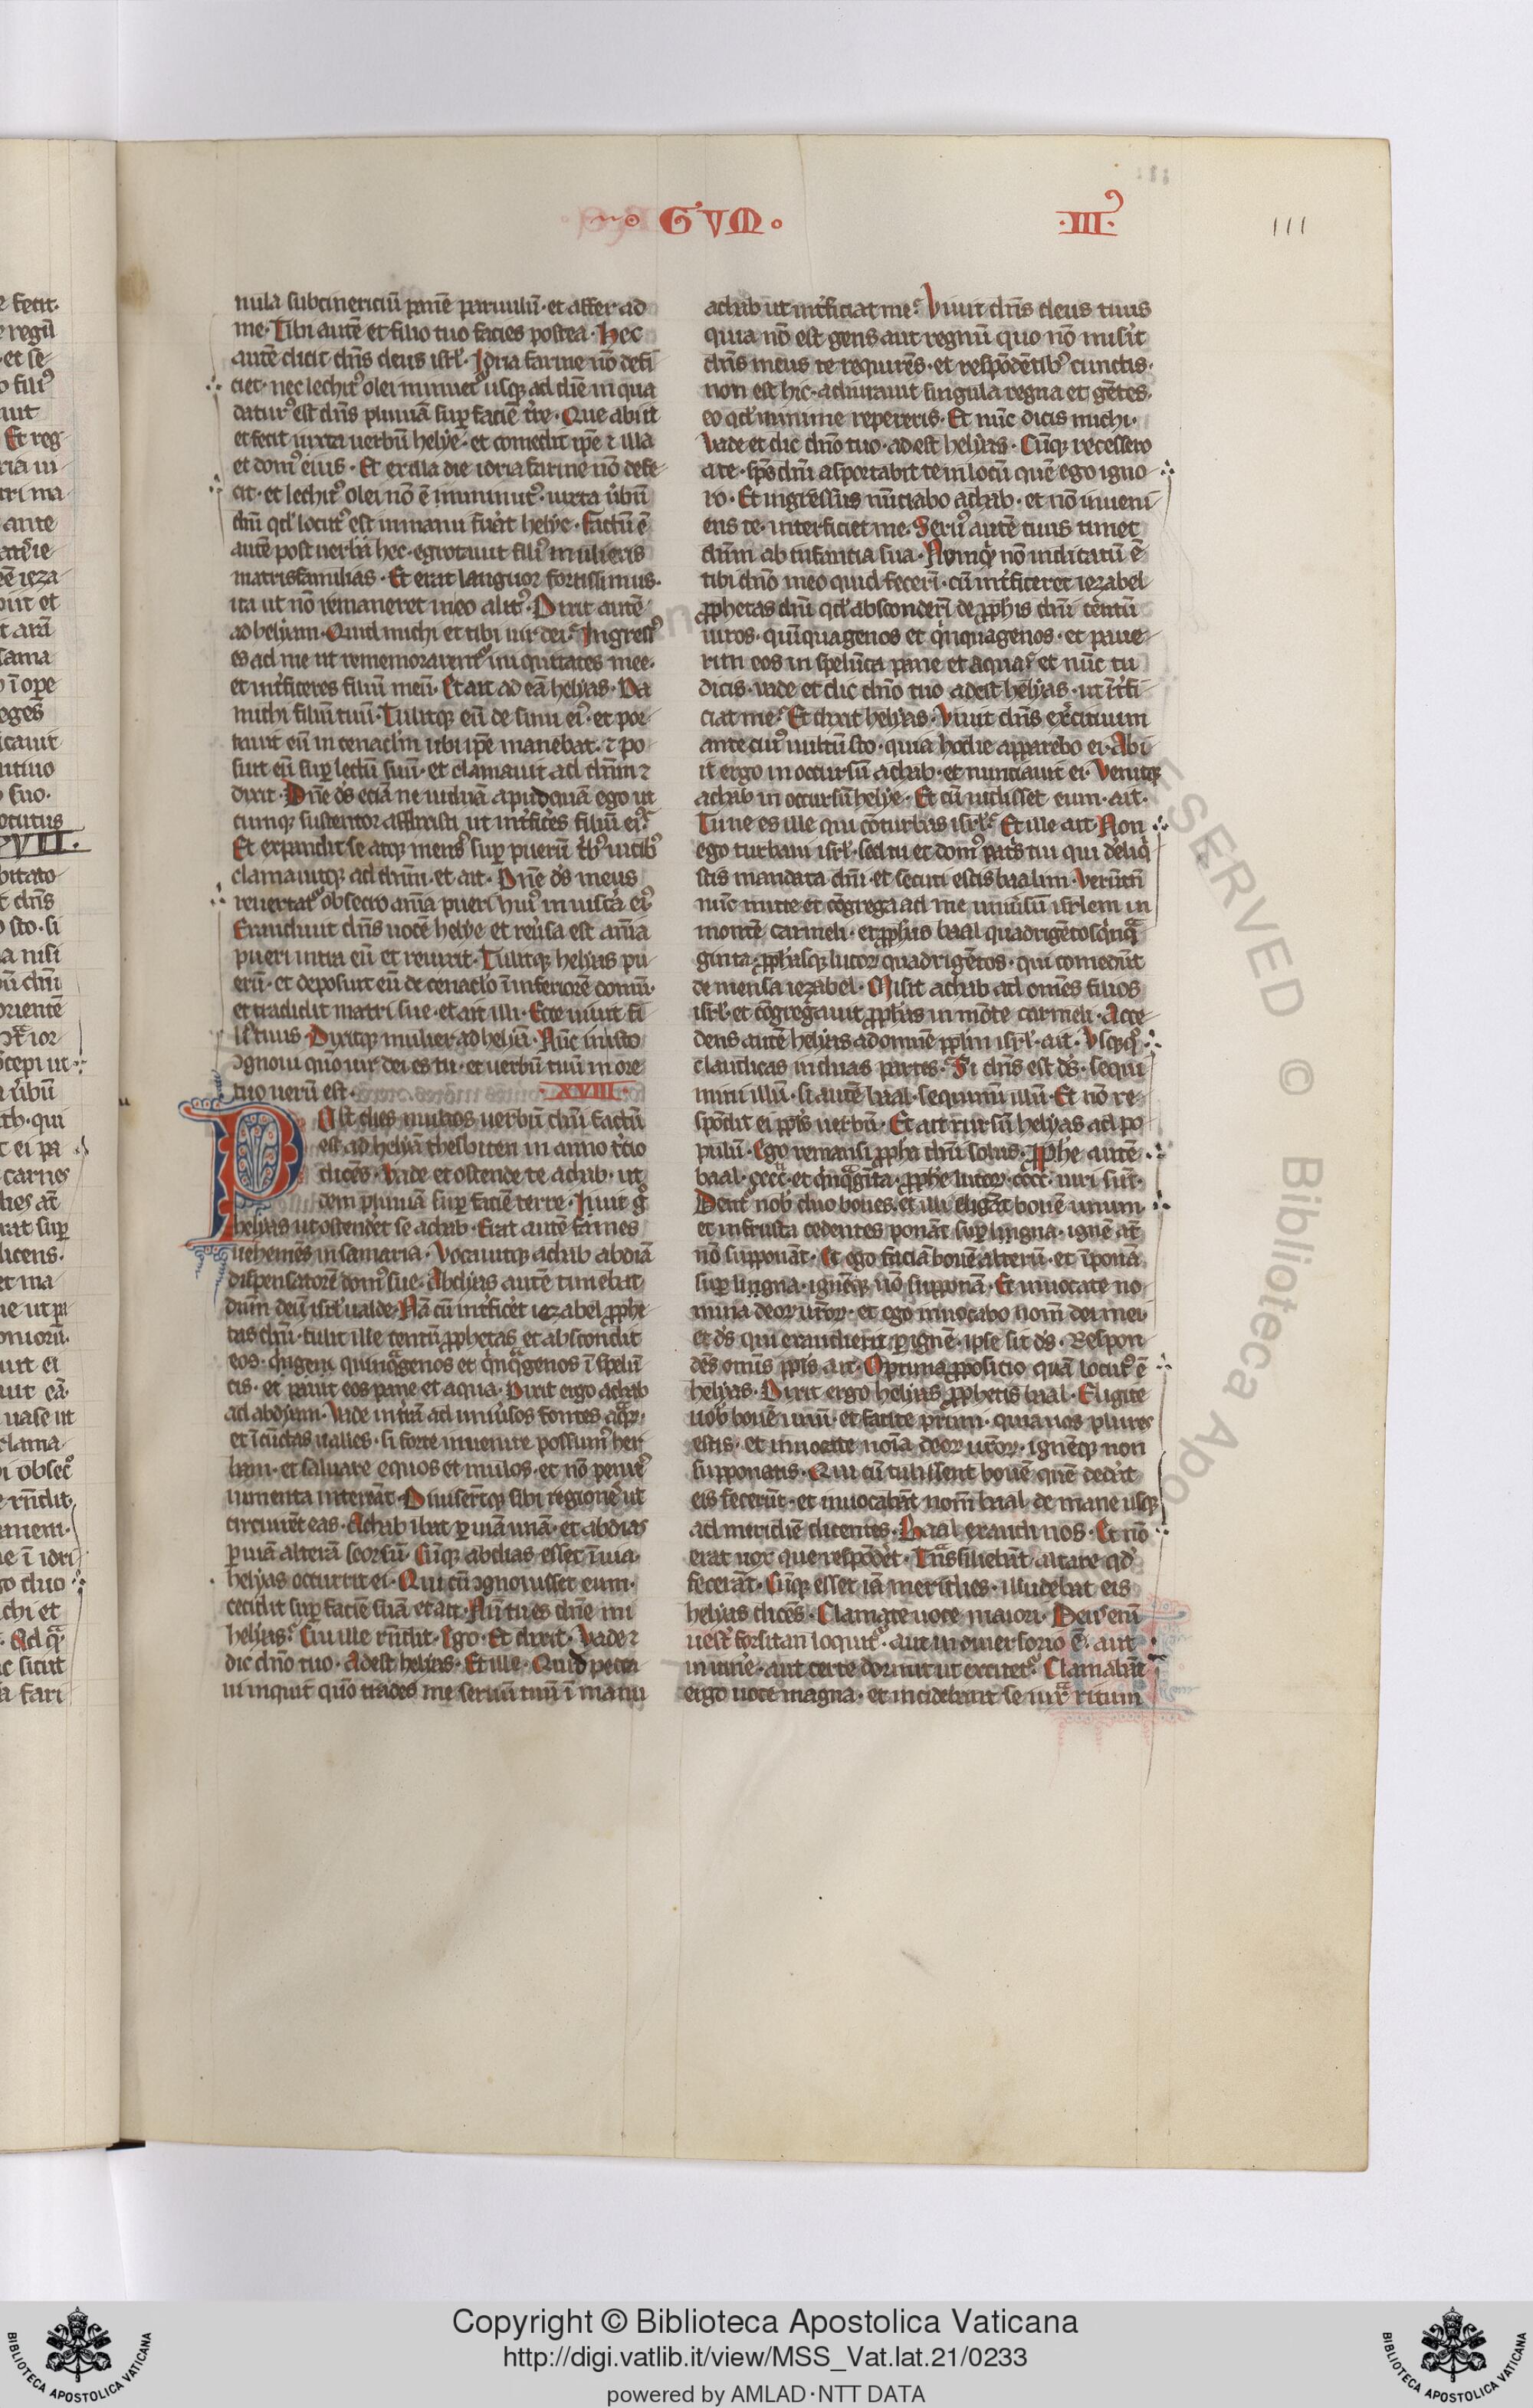 GVM
·III·
111
nula subcinericiũ panẽ paruulũ· et affer ad
me· Tibi autẽ et filio tuo facies postea· Hec
autẽ dicit dñs deus isrl· Jdria farine nõ defi
ciet· nec lechitꝰ olei minuet᷑ usqꝫ ad diẽ in qua
daturꝰ est dñs pluuiã suꝑ faciẽ tr̃e· Que abiit
et fecit iuxta uerbũ helye· et comedit ip̃e ⁊ illa
et domꝰ eius· Et ex illa die idria farine nõ defe
cit· et lechitꝰ olei nõ ẽ imminutꝰ· iuxta ũbũ
dñi qd̛ locutꝰ est in manu fuãt helye· Factũ ẽ
autẽ post uerba hec· egrotauit filiꝰ mulieris
matrisfamilias· Et erat languor fortissimus·
ita ut nõ remaneret in eo alitꝰ· Dixit autẽ
ad helyam· Quid michi et tibi uir dei? Ingressꝰ
es ad me ut rememorarent᷑ iniquitates mee·
et int̾ficeres filiũ meũ· Et ait ad eã helyas· Da
michi filiũ tuũ· Tulitqꝫ eũ de sinu eiꝰ· et por
tauit eũ in cenacl̃m ubi ip̃e manebat· ⁊ po
suit eũ suꝑ lectũ suũ· et clamauit ad dñm ⁊
dixit· Dñe ds̃ eciã ne uiduã apud quã ego ut
cumqꝫ sustentor afflixisti ut int̾fic̾es filiũ eiꝰ?
Et expandit se atqꝫ mensꝰ suꝑ puerũ t̾bꝰ uicibꝰ
clamauitqꝫ ad dñm· et ait· Dñe ds̃ meus
reuertat᷑ obsecro aĩa pueri huiꝰ in uisc̾a eiꝰ·
Exaudiuit dñs uocẽ helye et reũsa est aĩa
pueri intra eũ et reuixit· Tulitqꝫ helyas pu
erũ· et deposuit eũ de cenacl̃o ĩ inferiorẽ domũ·
et tradidit matri sue· et ait illi· Ecce uiuit fi
liꝰ tuus· Dixitqꝫ mulier ad helyã· Nũc in isto
ꝯgnoui qm̃ uir dei es tu· et uerbũ tuũ in ore
tuo uerũ est·
·XVIII·
Post dies multos uerbũ dñi factũ
est ad helyã thesbiten in anno t̾cio
dicẽs· Vade et ostende te achab· ut
dem pluuiã suꝑ faciẽ terre· Iuit g̊
helyas ut ostendet se achab· Erat autẽ fames
uehemẽs in samaria· Vocauitqꝫ achab abdiã
dispensatorẽ domꝰ sue· Abdyas autẽ timebat
dñm deũ isrl ualde· Nã cũ int̾fic̾et iezabel ꝓphe
tas dñi· tulit ille centũ ꝓphetas et abscondit
eos· quinquagenos et quinquagenos ĩ spelũ
cis· et pauit eos pane et aqua· Dixit ergo achab
ad abdyam· Vade in t̾rã ad uniũsos fontes aq̃rꝫ·
et ĩ cũctas ualles· si forte inuenire possumꝰ her
bam· et saluare equos et mulos· et nõ penitꝰ
iumenta intereãt· Diuisertqꝫ sibi regiones ut
circuirẽt eas· Achab ibat ꝑ uiã unã· et abdias
ꝑ uiã alterã seorsũ· Cũqꝫ abdias esset ĩ uia·
helyas occurrit ei· Qui cũ ꝯgnouisset eum·
cecidit suꝑ faciẽ suã et ait· Nũ tu es dñe mi
helyas? Cui ille rñdit· Ego· Et dixit· Vade ⁊
dic dño tuo· Adest helyas· Et ille· Quid pecca
ui inquit qm̃ trades me seruũ tuũ ĩ manu
achab ut int̾ficiat me? Viuit dñs deus tuus
quia nõ est gens aut regnũ quo nõ misit
dñs meus te requirẽs· et respõdẽtibꝰ cunctis·
non est hic· adiurauit singula regna et gẽtes·
eo qd̛ minime repereris· Et nũc dicis michi·
Vade et dic dño tuo· adest helyas· Cũqꝫ recessero
a te· sp̃s dñi asportabit te in locũ quẽ ego igno
ro· Et ingressus nũciabo achab· et nõ inueni
ens te· interficiet me· Seruꝰ autẽ tuus timet
dñm ab infantia sua· Nũquid nõ indicatũ ẽ
tibi dño meo quid fecerĩ· cũ int̾ficeret iezabel
ꝓphetas dñi qd̛ absconderĩ de ꝓphis dñi cẽtũ
uiros· quinquagenos et quinquagenos· et paue
rim eos in spelũca pane et aqua? et nũc tu
dicis· uade et dic dño tuo adest helyas· ut ĩt̾fi
ciat me? Et dixit helyas· Viuit dñs ex̾cituum
ante cuiꝰ uultũ sto· quia hodie apparebo ei· Abi
it ergo in occursũ achab· et nunciauit ei· Venitqꝫ
achab in occursũ helye· Et cũ uidisset eum· ait·
Tu ne es ille qui cõturbas isrl? Et ille ait· Non
ego turbaui isrl· sed tu et domꝰ pat̾s tui qui deliq̾
stis mandata dñi· et secuti estis baalim· Verũtñ
nũc mitte et cõgrega ad me uniũsũ isrlem in
monte carmeli· et ꝓphas baal quadrigẽtos quinqua
ginta· ꝓphasqꝫ lucoꝝ quadrigẽtos· qui comedũt
de mensa iezabel· Misit achab ad omẽs filios
isrl· et cõgregauit ꝓphas in mõte carmeli· Acce
dens autẽ helyas ad omnẽ ppl̃m isrl· ait· Vsqꝫquo
claudicas in duas partes? Si dñs est ds̃· sequi
mini illũ· si autẽ baal· sequimini illũ· Et nõ re
spõdit ei ppl̃s uerbũ· Et ait rursũ helyas ad po
pulũ· Ego remansi ꝓpha dñi solus· Ꝓphe autẽ
baal· cccc· et quinquaginta· ꝓphe lucoꝝ· cccc· uiri sũt·
Dent᷑ nob̾ duo boues· et illi eligãt bouẽ unum·
et in frusta cedentes ponãt suꝑ lingna· ignẽ aũt
nõ supponãt· Et ego faciã bouẽ alterũ· et ĩponã
suꝑ lingna· ignẽqꝫ nõ supponã· Et inuocate no
mina deoꝝ ur̃oꝝ· et ego inuocabo nom̃ dei mei
et ds̃ qui exaudierit ꝑ ignẽ· ipse sit ds̃· Respon
dẽs omĩs ppl̃s ait· Optima ꝓposicio quã locutꝰ ẽ
helyas· Dixit ergo helyas ꝓphetis baal· Eligite
uob̾ bouẽ unũ· et facite p̾mum· quia uos plures
estis· et inuocate noĩa deoꝝ ur̃oꝝ· ignẽqꝫ non
supponatis· Qui cũ tulissent bouẽ quẽ ded̾at
eis fecerũt· et inuocabãt nom̃ baal de mane usqꝫ
ad meridiẽ dicentes· Baal exaudi nos· Et nõ
erat uox que respõd̾et· Transiliebãt altare qd̛
fecerãt· Cũqꝫ esset iã meridies· illudebat eis
helyas dicẽs· Clamate uoce maiori· Deus enĩ
uest̾ forsitan loquit᷑· aut in diuersorio ẽ· aut
in itinẽ· aut certe dormit ut excitet᷑· Clamabãt
ergo uoce magna· et incidebant se iuxta ritum
Copyright © Biblioteca Apostolica Vaticana
http://digi.vatlib.it/view/MSS_Vat.lat.21/0233
powered by AMLAD·NTT DATA
BIBLIOTECA APOSTOLICA VATICANA
BIBLIOTECA APOSTOLICA VATICANA